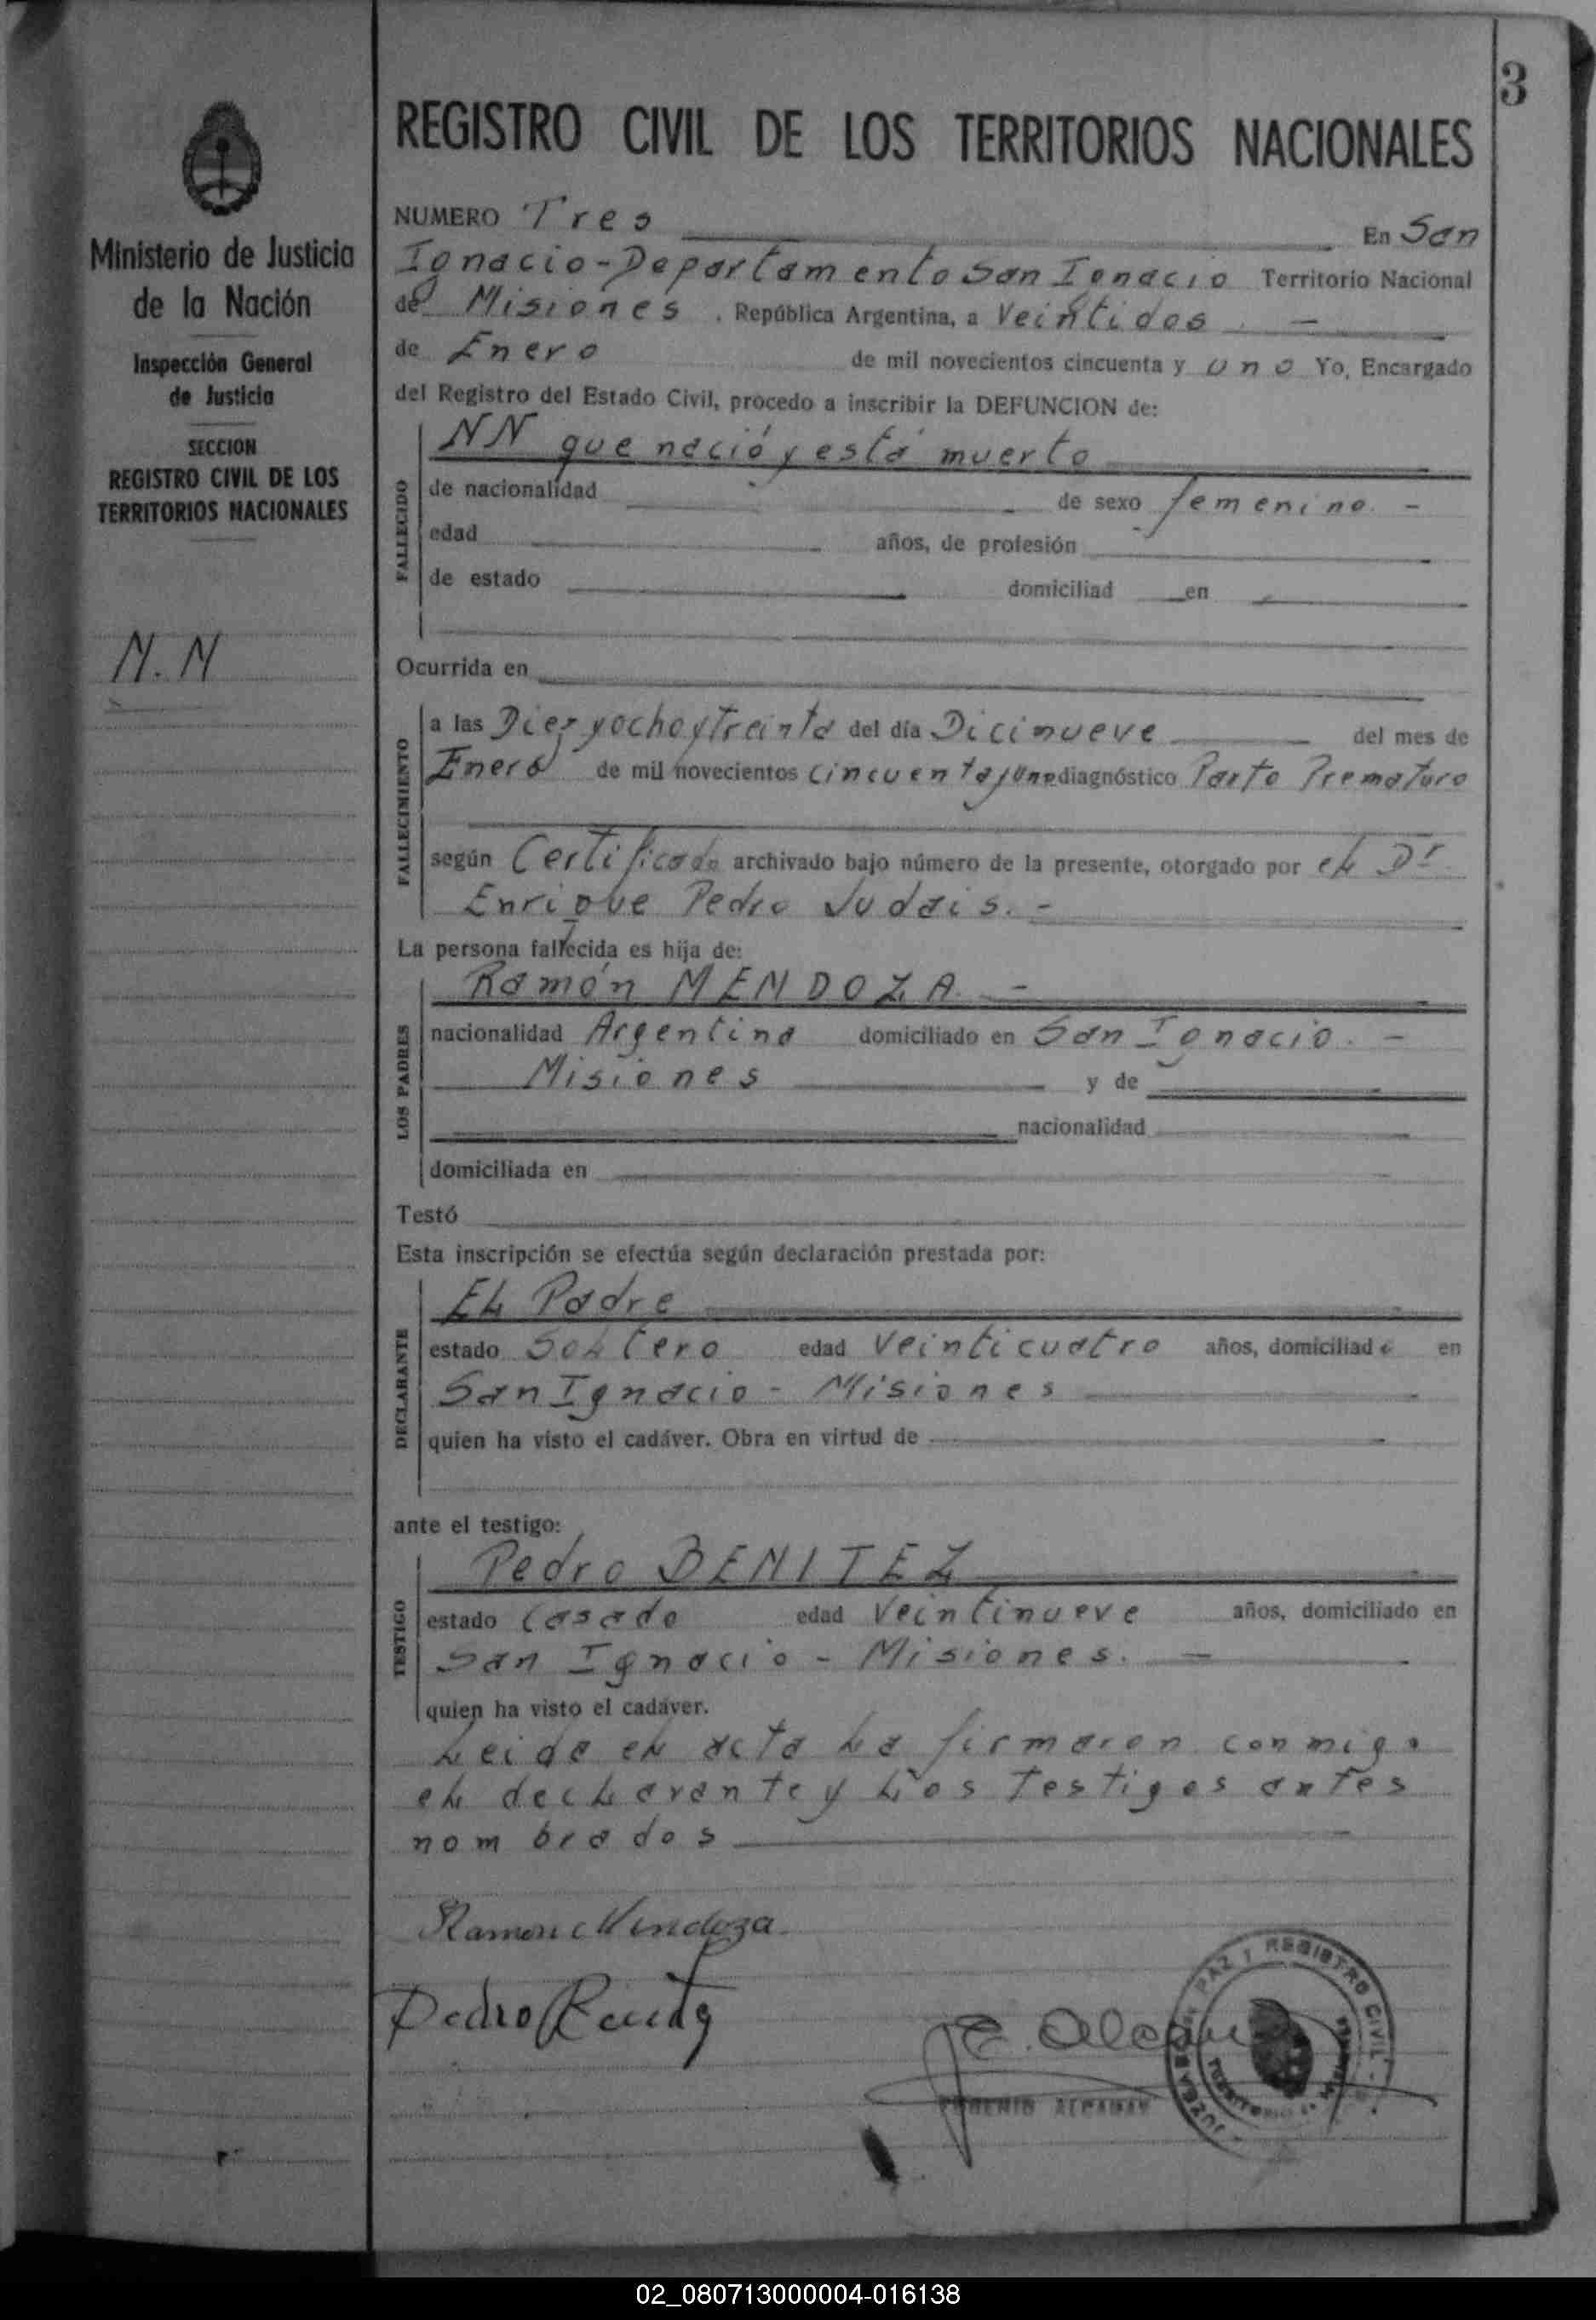 3
REGISTRO CIVIL DE LOS TERRITORIOS NACIONALES
Ministerio de Justicia
de la Nación
Inspección General
de Justicia
SECCION
REGISTRO CIVIL DE LOS
TERRITORIOS NACIONALES
N.N
NUMERO Tres En San
Ignacio - Departamento San Ignacio Territorio Nacional
de Misiones . República Argentina, a Veintidos . —
de Enero de mil novecientos cincuenta y uno Yo, Encargado
del Registro del Estado Civil, procedo a inscribir la DEFUNCION de:
FALLECIDO
NN que nació y está muerto
de nacionalidad de sexo femenino. -
edad años, de profesión
de estado domiciliad en
Ocurrida en
FALLECIMIENTO
a las Diez y ocho y Treinta del día Dicinueve del mes de
Enero de mil novecientos cincuenta y uno diagnóstico Parto Prematuro
según Certificado archivado bajo número de la presente, otorgado por el Dr.
Enrique Pedro Judais. -
La persona fallecida es hija de:
LOS PADRES
Ramón MENDOZA. -
nacionalidad Argentina domiciliado en San Ignacio. -
Misiones y de
nacionalidad
domiciliada en
Testó
Esta inscripción se efectúa según declaración prestada por:
DECLARANTE
El Padre
estado Soltero edad Veinticuatro años, domiciliado en
San Ignacio - Misiones
quien ha visto el cadáver. Obra en virtud de
ante el testigo:
TESTIGO
Pedro BENITEZ
estado Casado edad Veintinueve años, domiciliado en
San Ignacio - Misiones. —
quien ha visto el cadáver.
Leida el acta la firmaron conmigo
el declarante y los Testigos antes
nombrados
Ramon Mendoza
Pedro
E.
JUZGADO DE PAZ Y REGISTRO CIVIL
EUGENIO
02_080713000004-016138